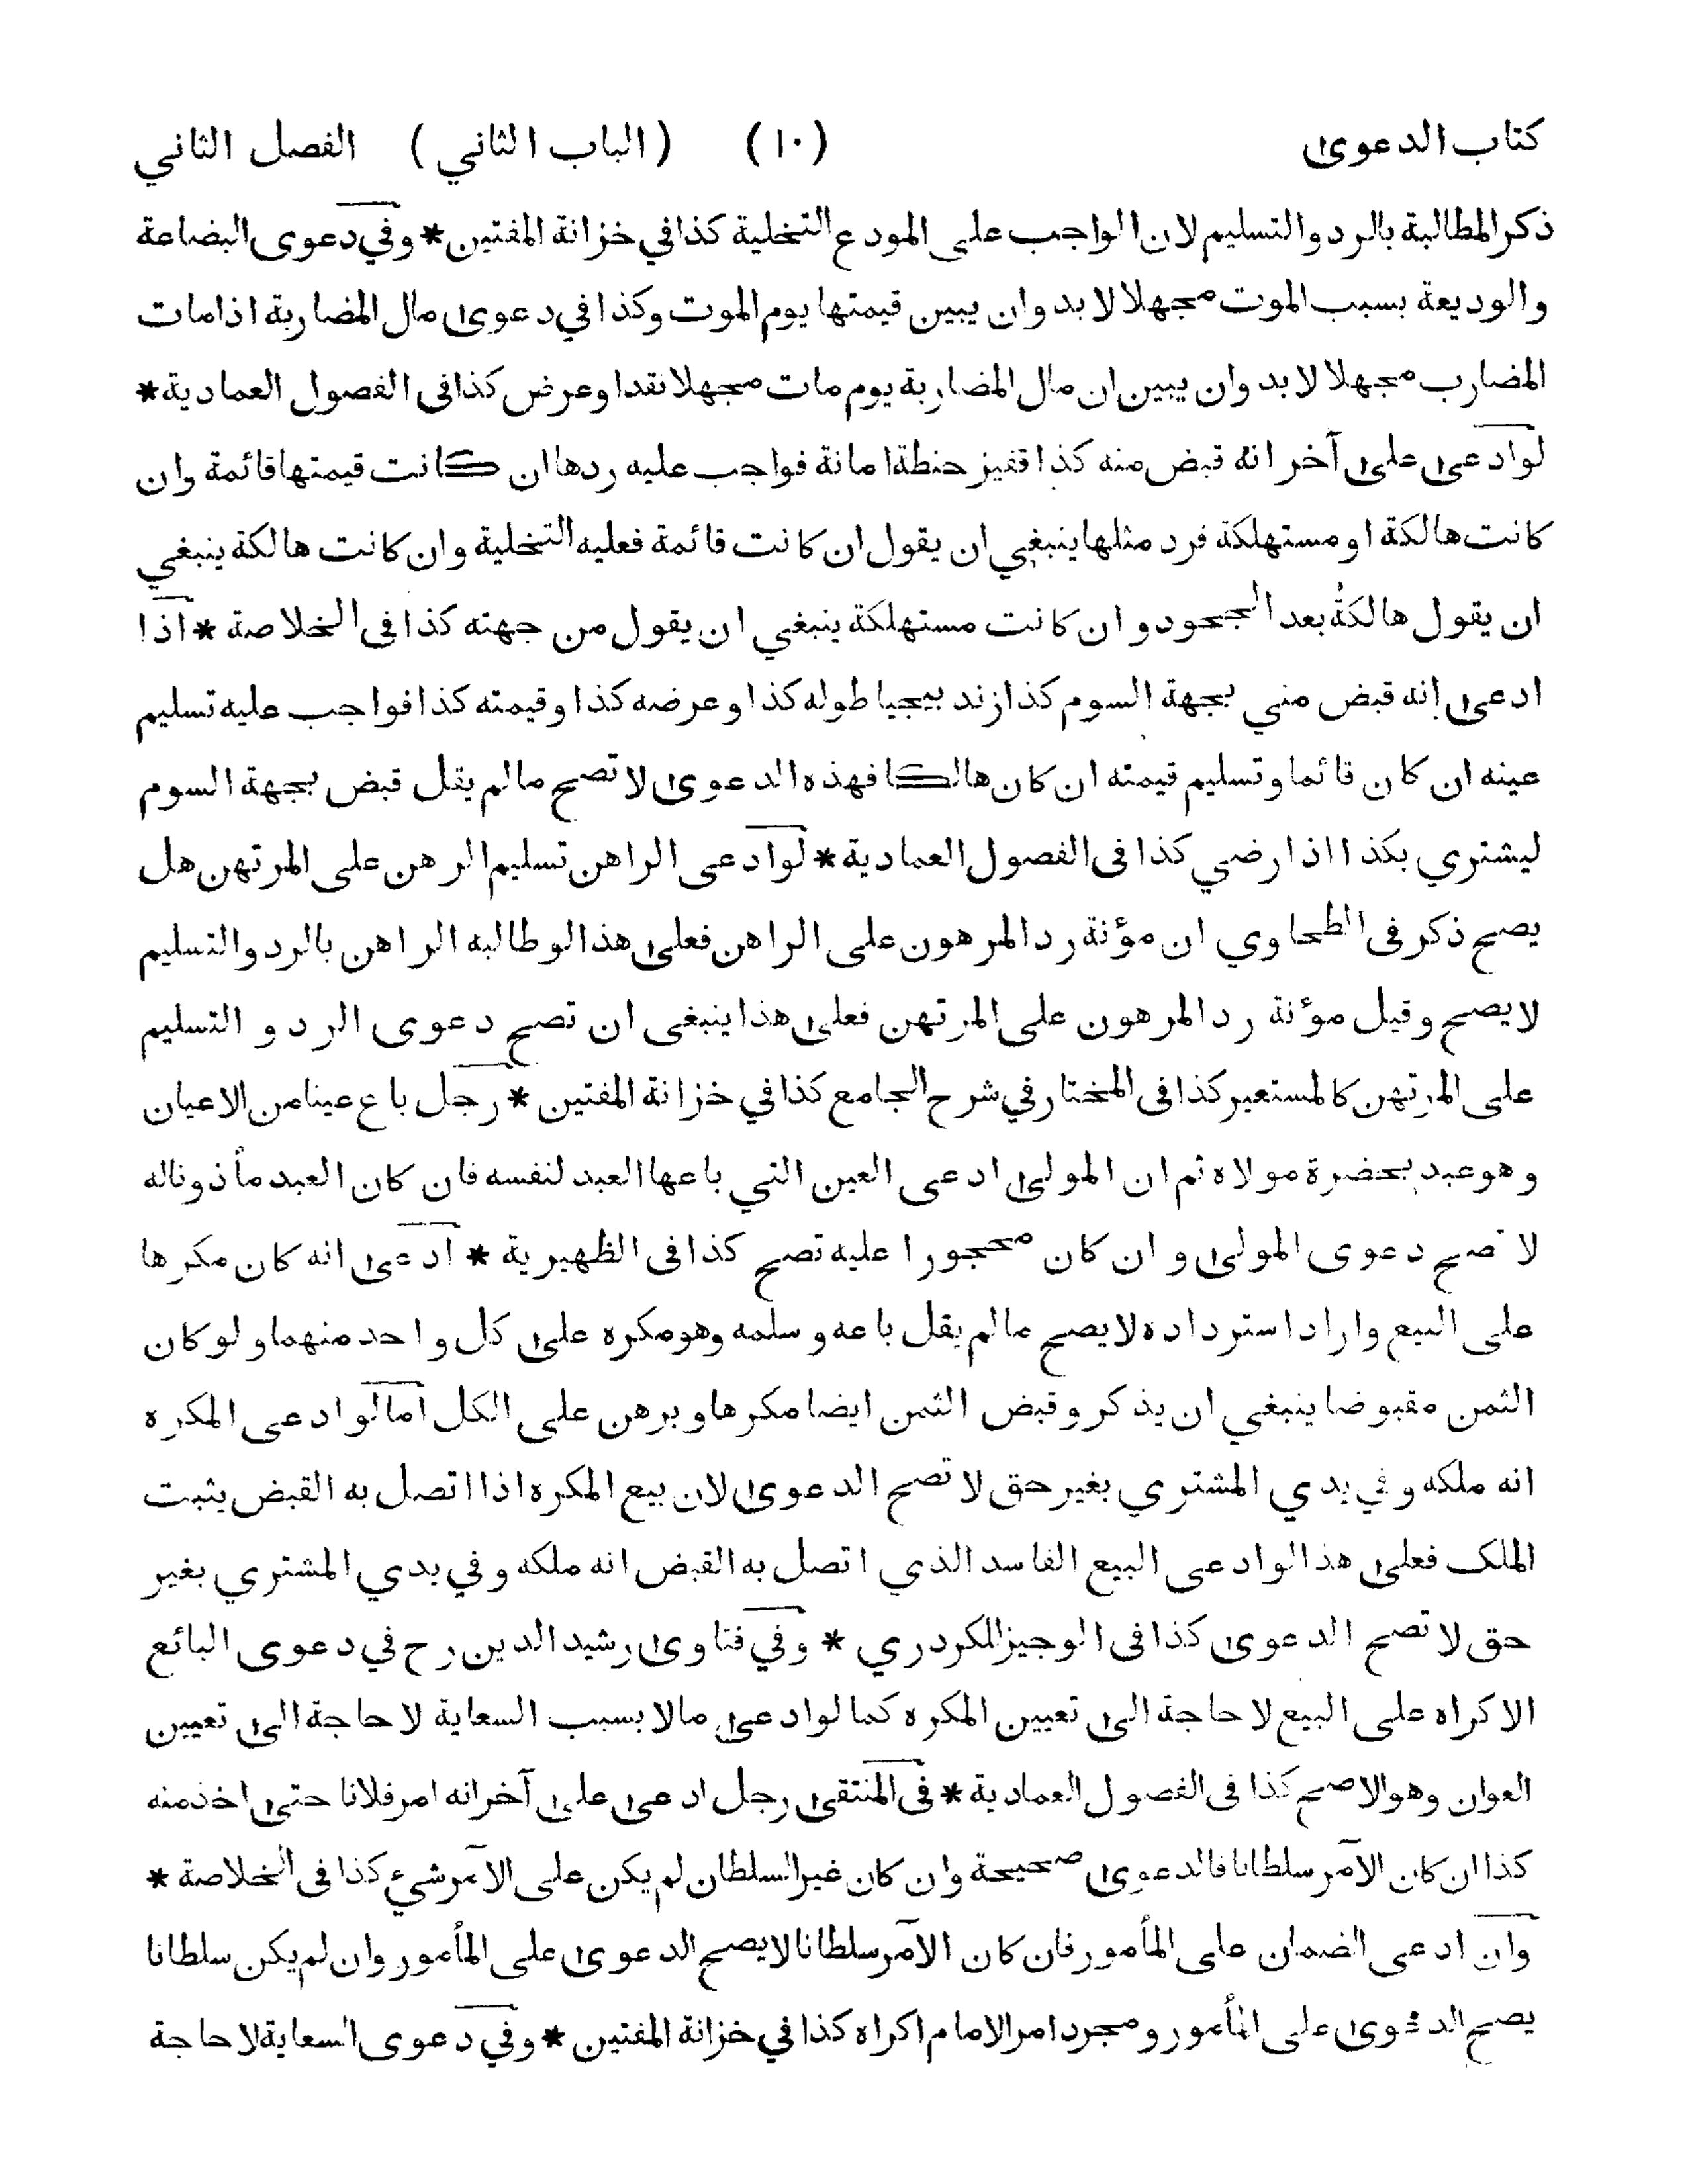 كتاب الدعوى (١٠) (الباب الثاني) الفصل الثاني
ذكر المطالبة بالرد والتسليم لان الواجب على المودع التخلية كذا في خزانة المفتين * وفي دعوى البضاعة
والوديعة بسبب الموت مجهلا لا بد وان يبين قيمتها يوم الموت وكذا في دعوى مال المضاربة اذا مات
المضارب مجهلا لا بد وان يبين ان مال المضاربة يوم مات مجهلا نقد او عرض كذا فى الفصول العمادية *
لو ادعى على آخر انه قبض منه كذا قفيز حنطة امانة فواجب عليه ردها ان كانت قيمتها قائمة وان
كانت هالكة او مستهلكة فرد مثلها ينبغي ان يقول ان كانت قائمة فعليه التخلية وان كانت هالكة ينبغي
ان يقول هالكة بعد الجحود وان كانت مستهلكة ينبغي ان يقول من جهته كذا فى الخلاصة * اذا
ادعى انه قبض مني بجهة السوم كذا زند بيجيا طوله كذا وعرضه كذا وقيمته كذا فواجب عليه تسليم
عينه ان كان قائما وتسليم قيمته ان كان هالكا فهذه الدعوى لا تصح ما لم يقل قبض بجهة السوم
ليشتري بكذا اذا رضي كذا فى الفصول العمادية * لو ادعى الراهن تسليم الرهن على المرتهن هل
يصح ذكر فى الطحاوي ان مؤنة رد المرهون على الراهن فعلى هذا لو طالبه الراهن بالرد والتسليم
لا يصح وقيل مؤنة رد المرهون على المرتهن فعلى هذا ينبغى ان تصح دعوى الرد و التسليم
على المرتهن كالمستعير كذا فى المختار في شرح الجامع كذا في خزانة المفتين * رجل باع عينا من الاعيان
وهو عبد بحضرة مولاه ثم ان المولى ادعى العين التي باعها العبد لنفسه فان كان العبد مأذونا له
لا تصح دعوى المولى وان كان محجورا عليه تصح كذا فى الظهيرية * ادعى انه كان مكرها
على البيع واراد استرداده لا يصح ما لم يقل باعه وسلمه وهو مكره على كل واحد منهما ولو كان
الثمن مقبوضا ينبغي ان يذكر وقبض الثمن ايضا مكرها وبرهن على الكل اما لو ادعى المكره
انه ملكه وفي يدي المشتري بغير حق لا تصح الدعوى لان بيع المكره اذا اتصل به القبض يثبت
الملك فعلى هذا لو ادعى البيع الفاسد الذي اتصل به القبض انه ملكه وفي يدي المشتري بغير
حق لا تصح الدعوى كذا فى الوجيز للكردري * وفي فتاوى رشيد الدين رح في دعوى البائع
الاكراه على البيع لا حاجة الى تعيين المكره كما لو ادعى مالا بسبب السعاية لا حاجة الى تعيين
العوان وهو الاصح كذا فى الفصول العمادية * فى المنتقى رجل ادعى على آخر انه امر فلانا حتى اخذ منه
كذا ان كان الآمر سلطانا فالدعوى صحيحة وان كان غير السلطان لم يكن على الآمر شيء كذا فى الخلاصة *
وان ادعى الضمان على المأمور فان كان الآمر سلطانا لا يصح الدعوى على المأمور وان لم يكن سلطانا
يصح الدعوى على المأمور ومجرد امر الامام اكراه كذا في خزانة المفتين * وفي دعوى السعاية لا حاجة